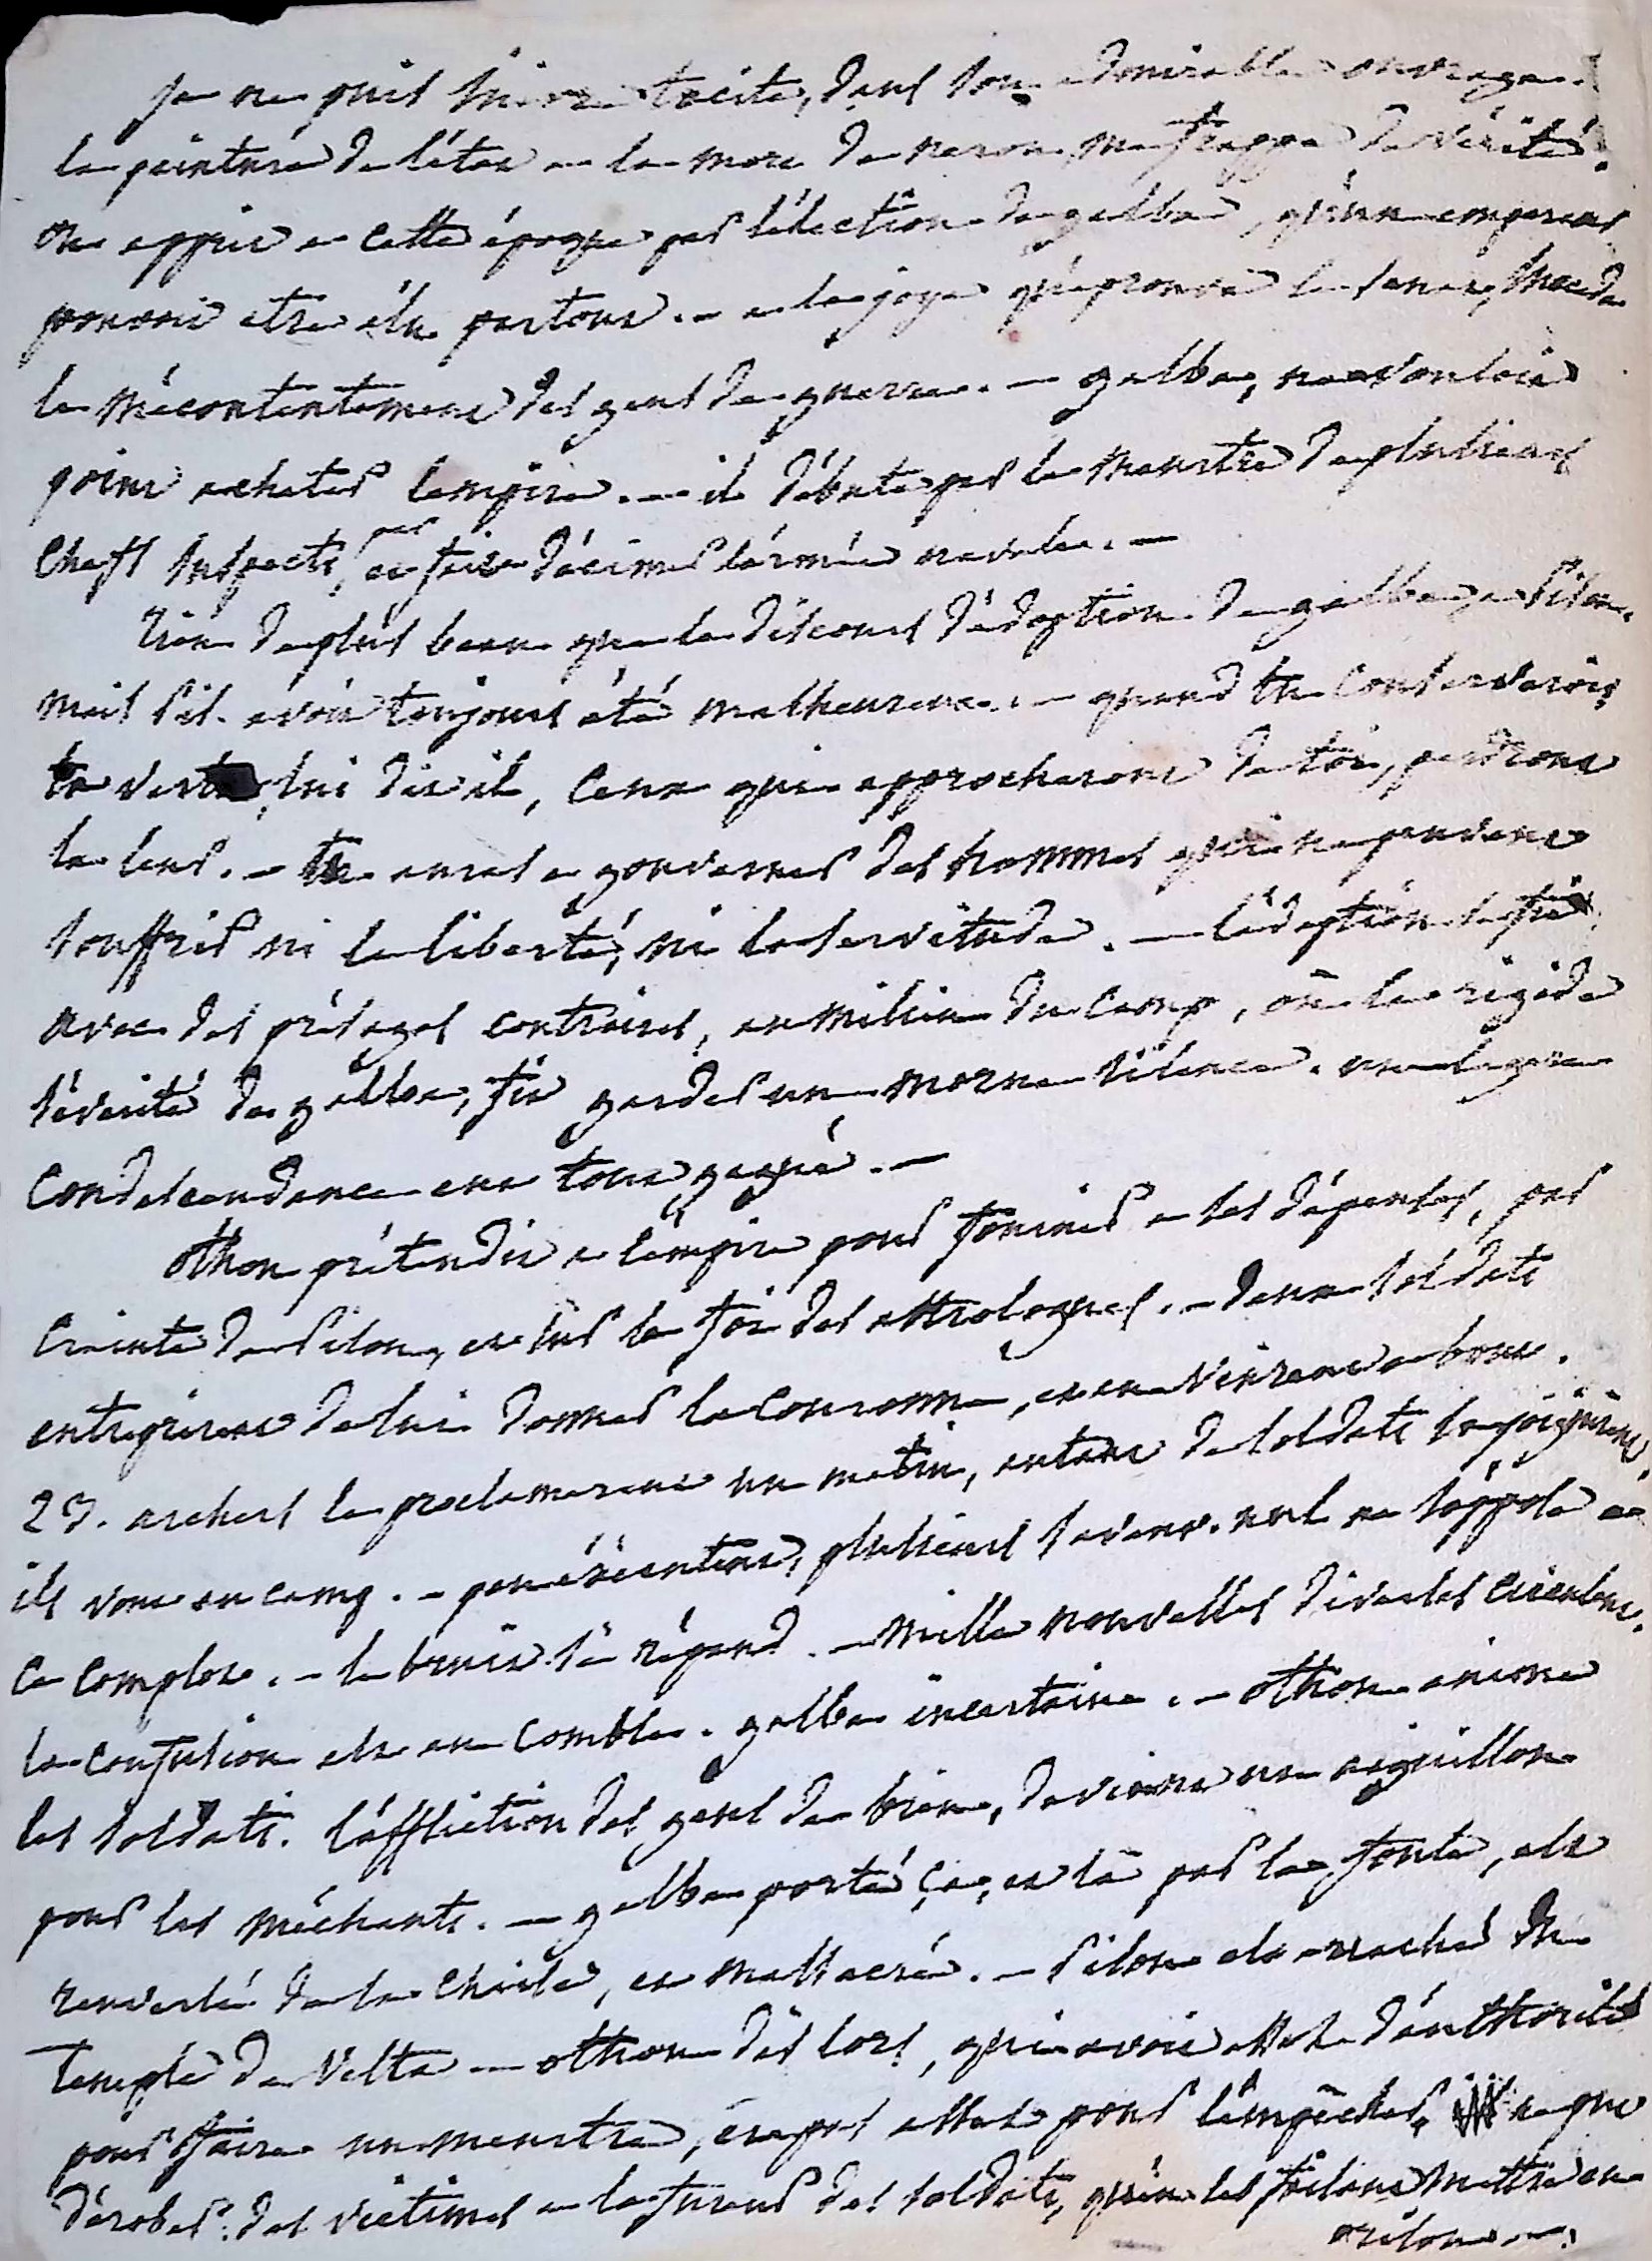 je ne puis suivre tacite, dans son admirable ouvrage.
la peinture de l'état a la mort de neron me frappe de vérité.
on apprit a cette époque par l'élection de galba, qu'un empereur
pouvoit etre élu partout. - a la joye qu'éprouva le senat, succéda
le mécontentement des gens de guerre. - galba, ne vouloit
point acheter l'empire. - il débuta par le meurtre de plusieurs
chefs suspects, et par faire décimer l'armée navale. -
rien de plus beau que le discours d'adoption de galba a Pison.
mais Pison avoit toujours été malheureux. - quand tu conserverois
ta vertu, lui dit il, ceux qui approcheront de toi, perdront
la leur. - tu auras a gouverner des hommes qui ne peuvent
souffrir ni la liberté, ni la servitude. - l'adoption se fit
avec des présages contraires, au milieu du camp, où la rigide
sévérité de galba, fit garder un morne silence. un léger
condescendance eut tout gagné. -
othon prétendit a l'empire pour fournir a ses dépenses, par
crainte de Pison, et sur la foi des astrologues. - deux soldats
entreprirent de lui donner la couronne, et en vinrent a bout.
23. archers le proclamerent un matin, autant de soldats se joignirent,
ils vont au camp. - peu exécutent, plusieurs savent. nul ne s'oppose a
ce complot. - le bruit s'en répand. - mille nouvelles diverses circulent.
la confusion est au comble. galba incertain. - othon anime
les soldats. l'affliction des gens de bien, devient un aiguillon
pour les méchants. - galba porté ça, et là par la foule, est
renversé de la chaise, et massacré. - Pison est arraché du
temple de Vesta - othon dès lors, qui avoit assez d'authorité
pour faire un meurtre, et pas assez pour l'empêcher, ne put
dérober des victimes a la fureur des soldats, qu'en les faisant mettre en
prison -.